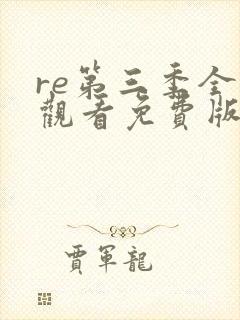 re第三季全
觀看免費版
賈軍龍